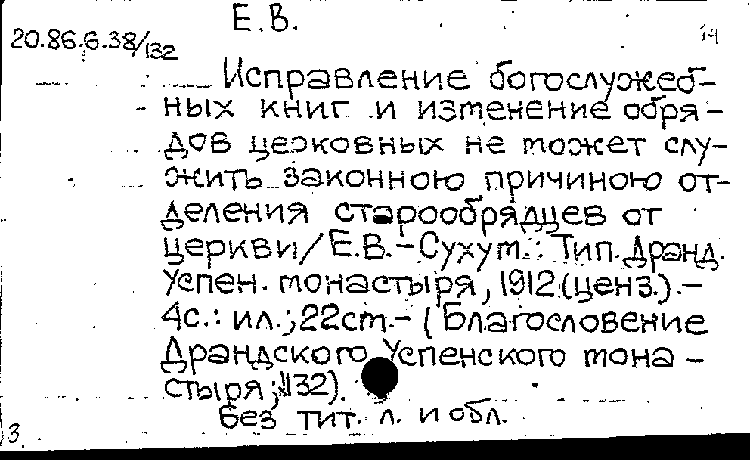 Е.В.
20.86.6.38/132
Исправление богослужеб-
ных книг и изменение обря-
дов церковных не может слу-
жить законною причиною от-
деления старообрядцев от
церкви/Е.В.-Сухум.: Тип. Дранд.
Успен. монастыря, 1912 (ценз.).-
4с.: ил.; 22см.- (Благословение
Драндского Успенского мона-
стыря; 132).
Без тит. л. и обл.
3